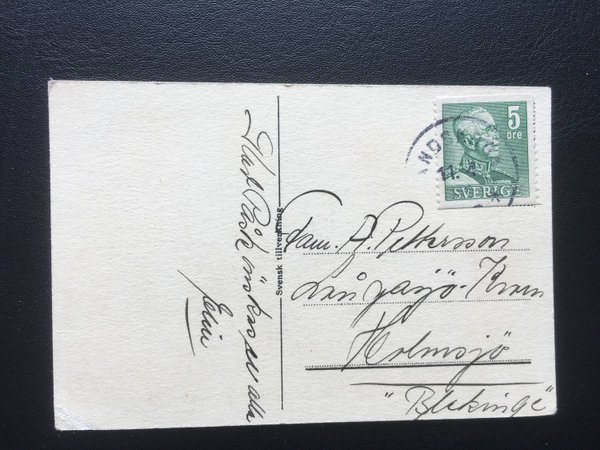 Glad Påsk önskas Eder alla
Elin
Svensk tillverkning
5
öre
SVERIGE
17.
Fam. A. Pettersson
Långasjö-Kvarn
Holmsjö
"Blekinge"